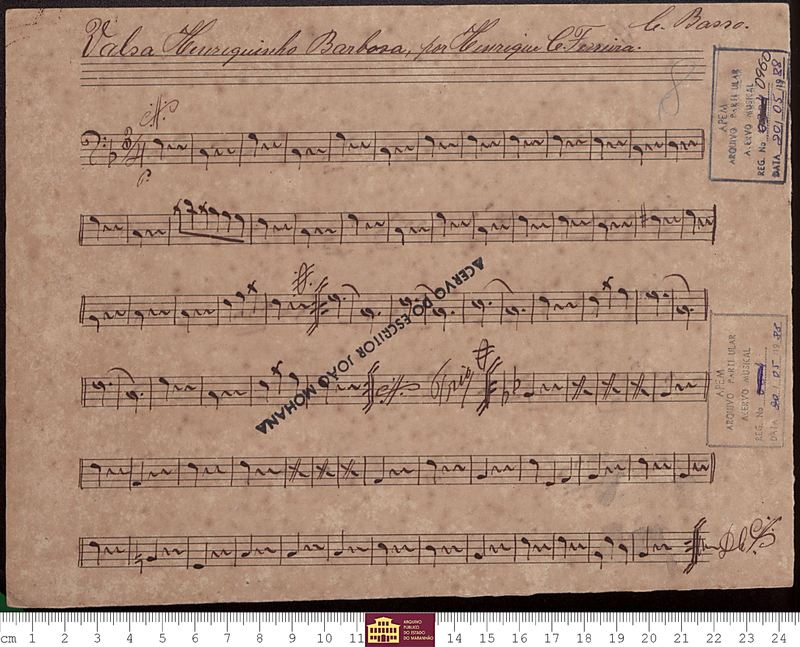 C. Basso.
Valsa Henriquinho Barbosa, por Henrique C. Ferreira.
8
APEM
ARQUIVO PARTICULAR
ACERVO MUSICAL
REG. No 0960
DATA 201 05 1988
3/4
p.
ACERVO DO ESCRITOR JOÃO MOHANA
APEM
ARQUIVO PARTICULAR
ACERVO MUSICAL
REG. No
DATA 20 1 05 1988
Trio
D C
cm 1 2 3 4 5 6 7 8 9 10 11 14 15 16 17 18 19 20 21 22 23 24
ARQUIVO
PÚBLICO
DO ESTADO
DO MARANHÃO